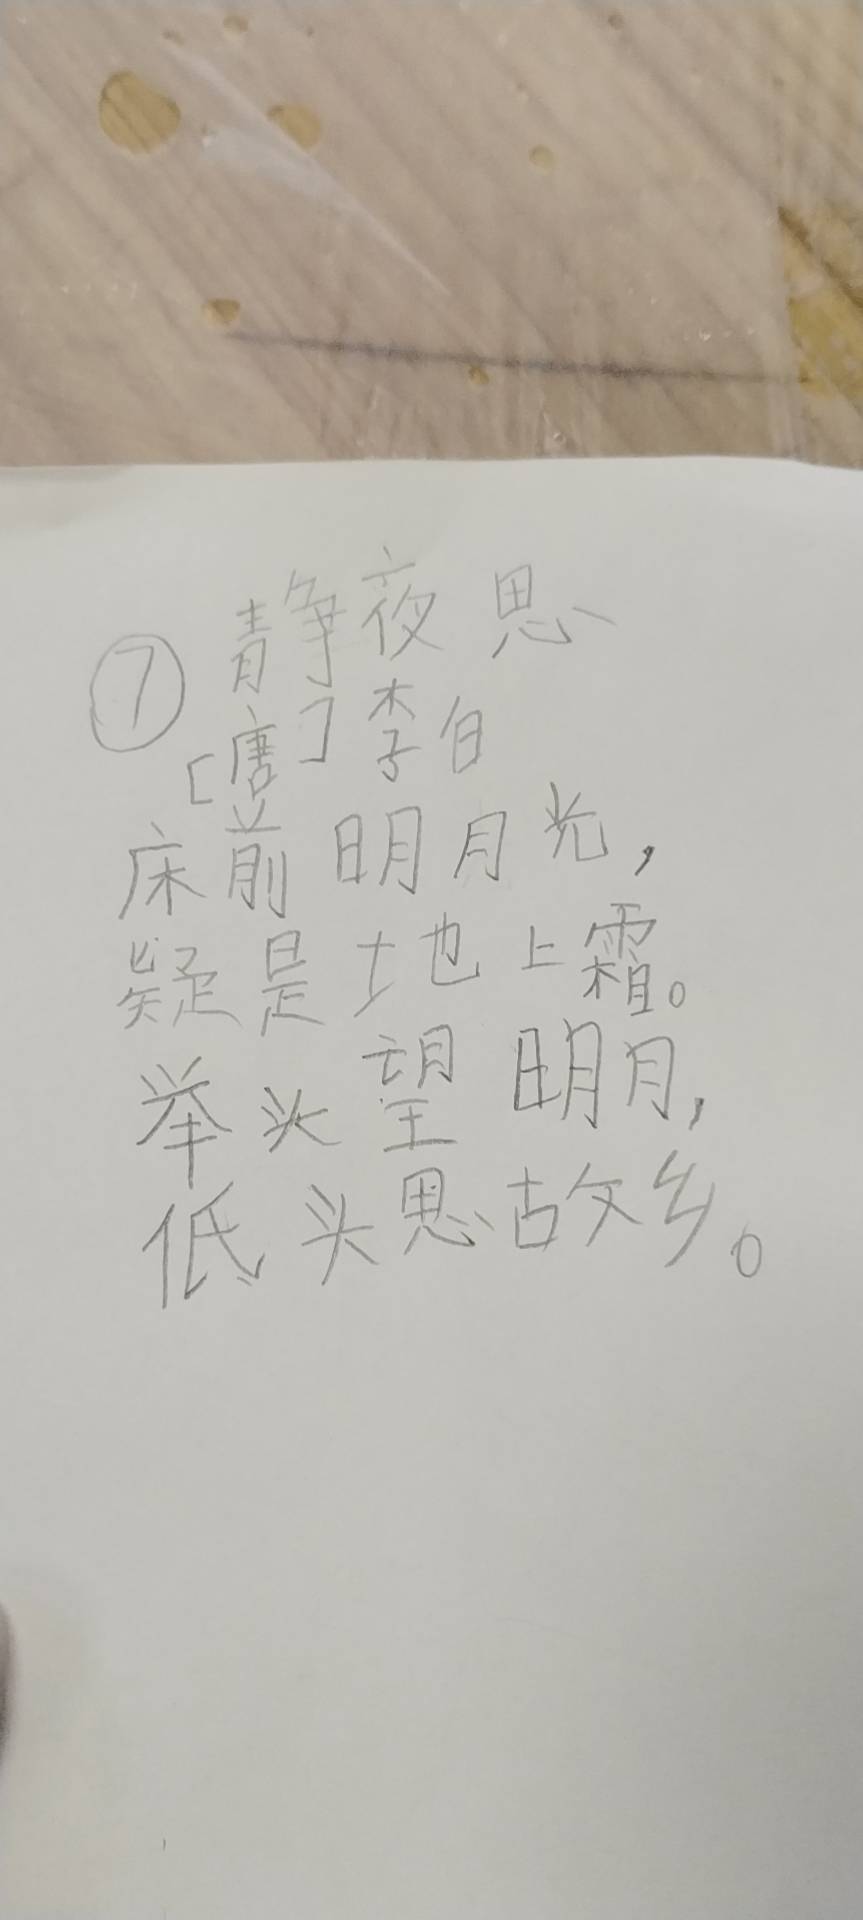 ⑦ 静夜思
[唐] 李白
床前明月光，
疑是地上霜。
举头望明月，
低头思故乡。